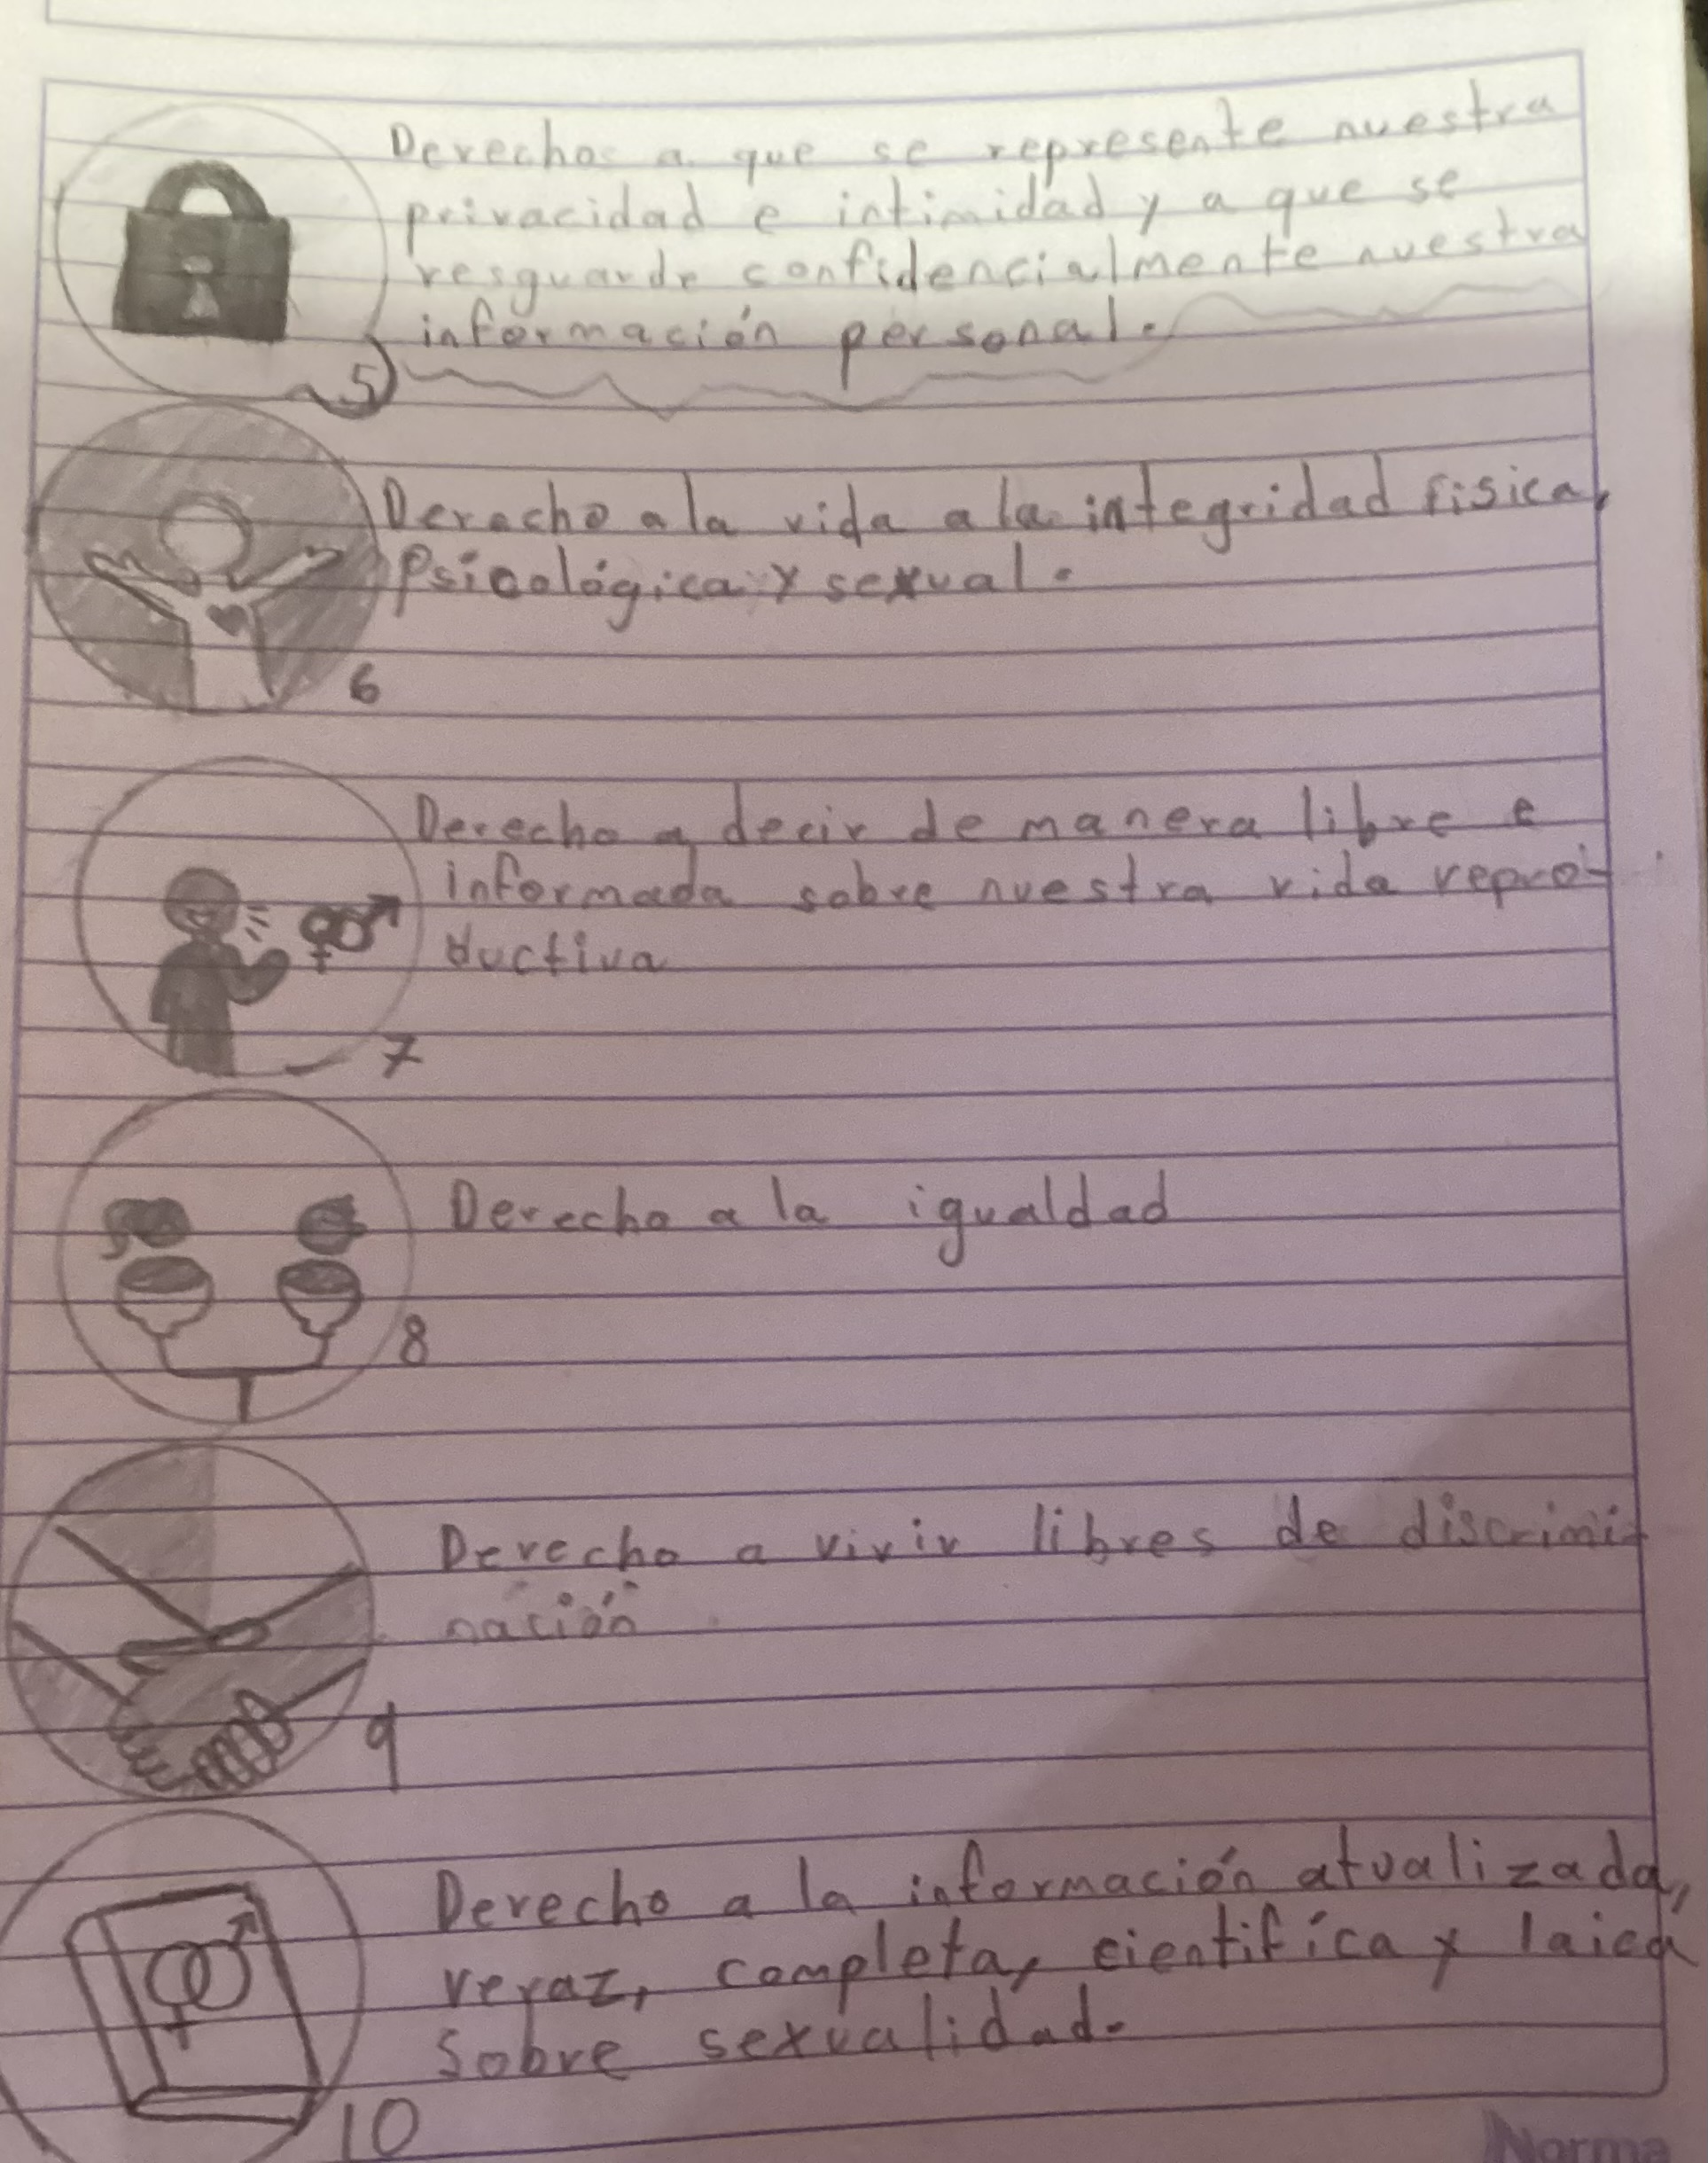 Derechos a que se represente nuestra
privacidad e intimidad y a que se
resguarde confidencialmente nuestra
información personal.
5
Derecho a la vida a la integridad física,
Psicológica y sexual.
6
Derecho a decir de manera libre e
informada sobre nuestra vida repro-
ductiva
7
Derecho a la igualdad
8
Derecho a vivir libres de discrimi-
nación
9
Derecho a la información atualizada,
veraz, completa, cientifíca y laica
Sobre sexualidad.
10
Norma